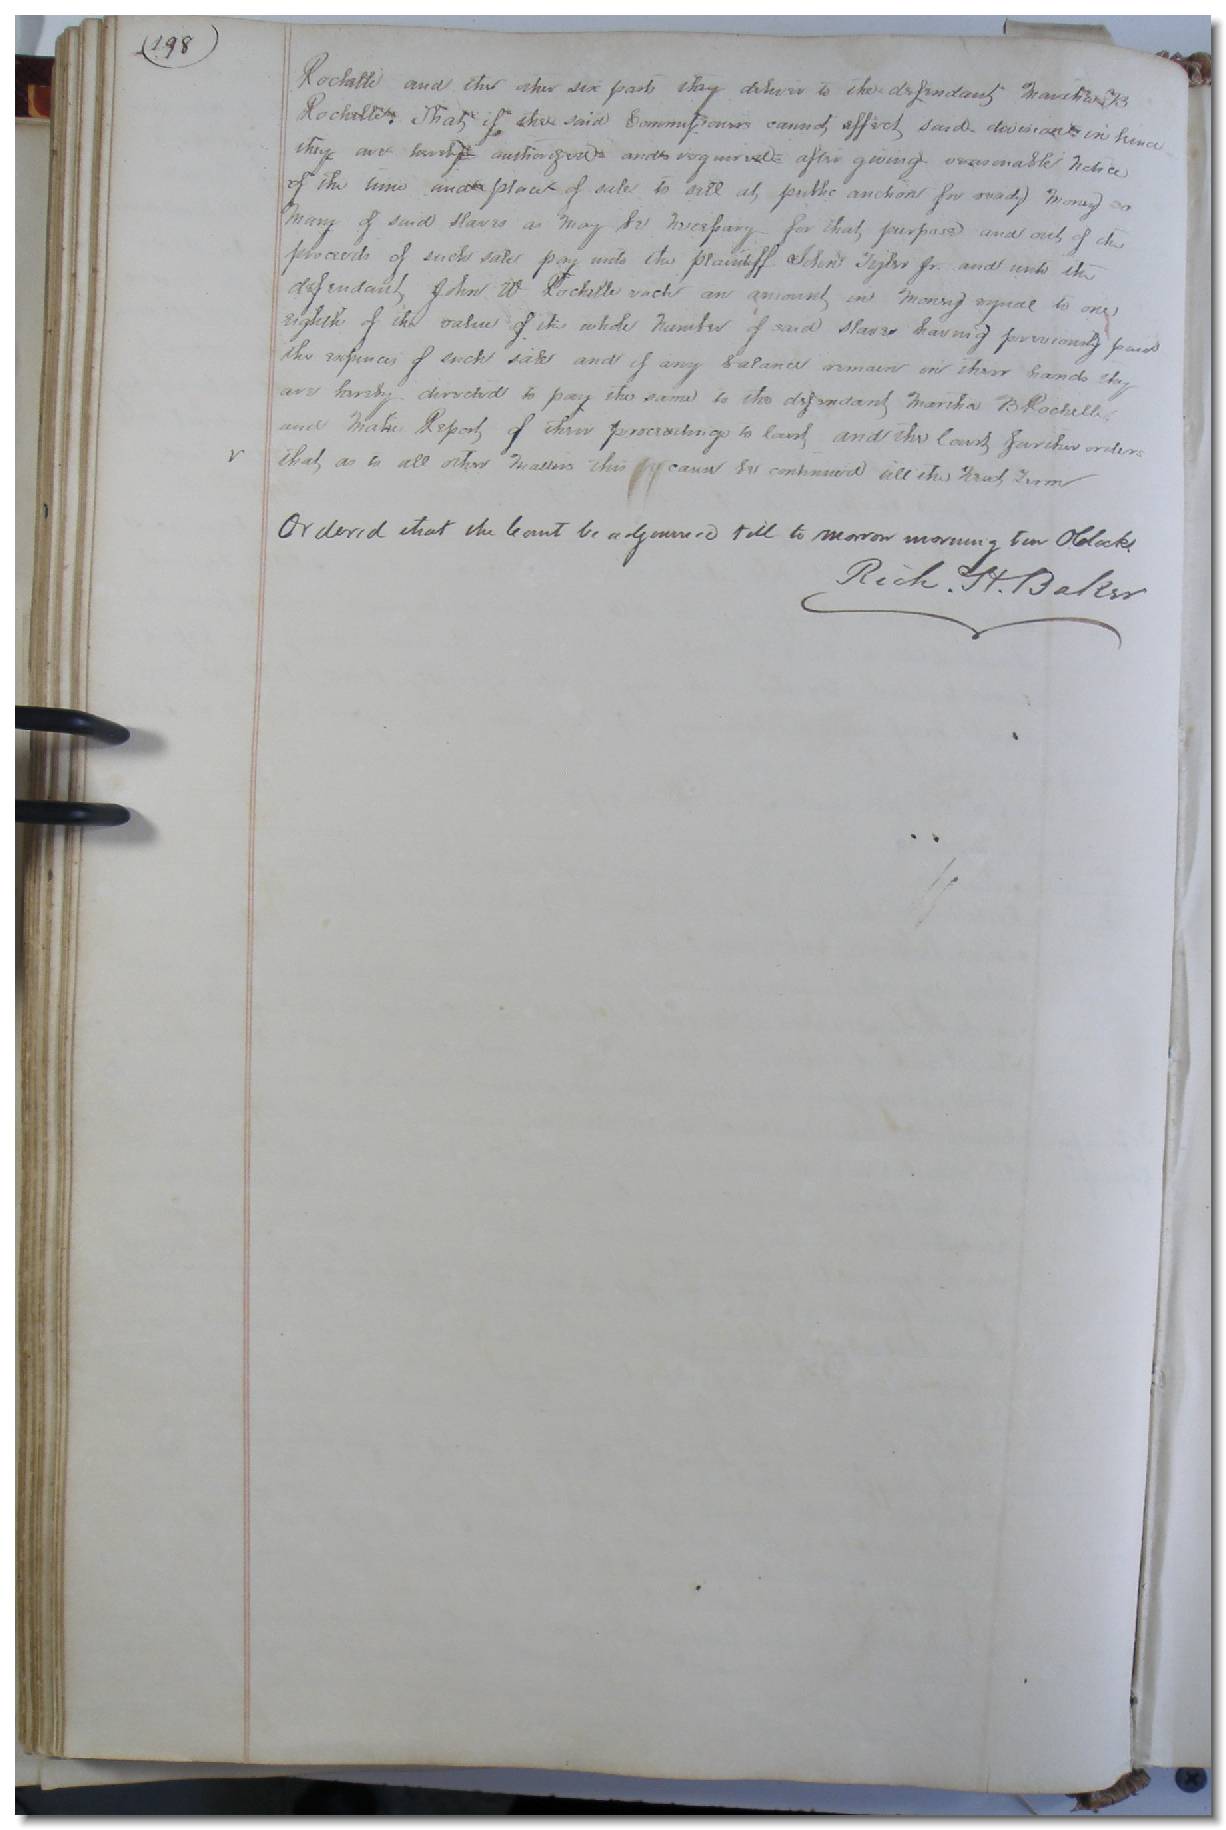 198
Rochelle and the other six parts they deliver to the defendant Martha B
Rochelle. That if the said Commissioners cannot effect said division in hence
they are hereby authorized and required after giving reasonable notice
of the time and place of sale to sell at public auction for ready money so
many of said slaves as may be necessary for that purpose and out of the
proceeds of such sale pay unto the plaintiff John Tyler Jr. and unto the
defendant John W Rochelle each an amount in money equal to one
eighth of the value of the whole number of said slaves having previously paid
the expences of such sale and if any balance remain in their hands they
are hereby directed to pay the same to the defendant Martha B Rochelle
and make Report of their proceedings to Court and the Court further orders
v that as to all other matters this cause be continued till the next Term
Ordered that the Court be adjourned till to morrow morning ten OClock.
Rich. H. Baker